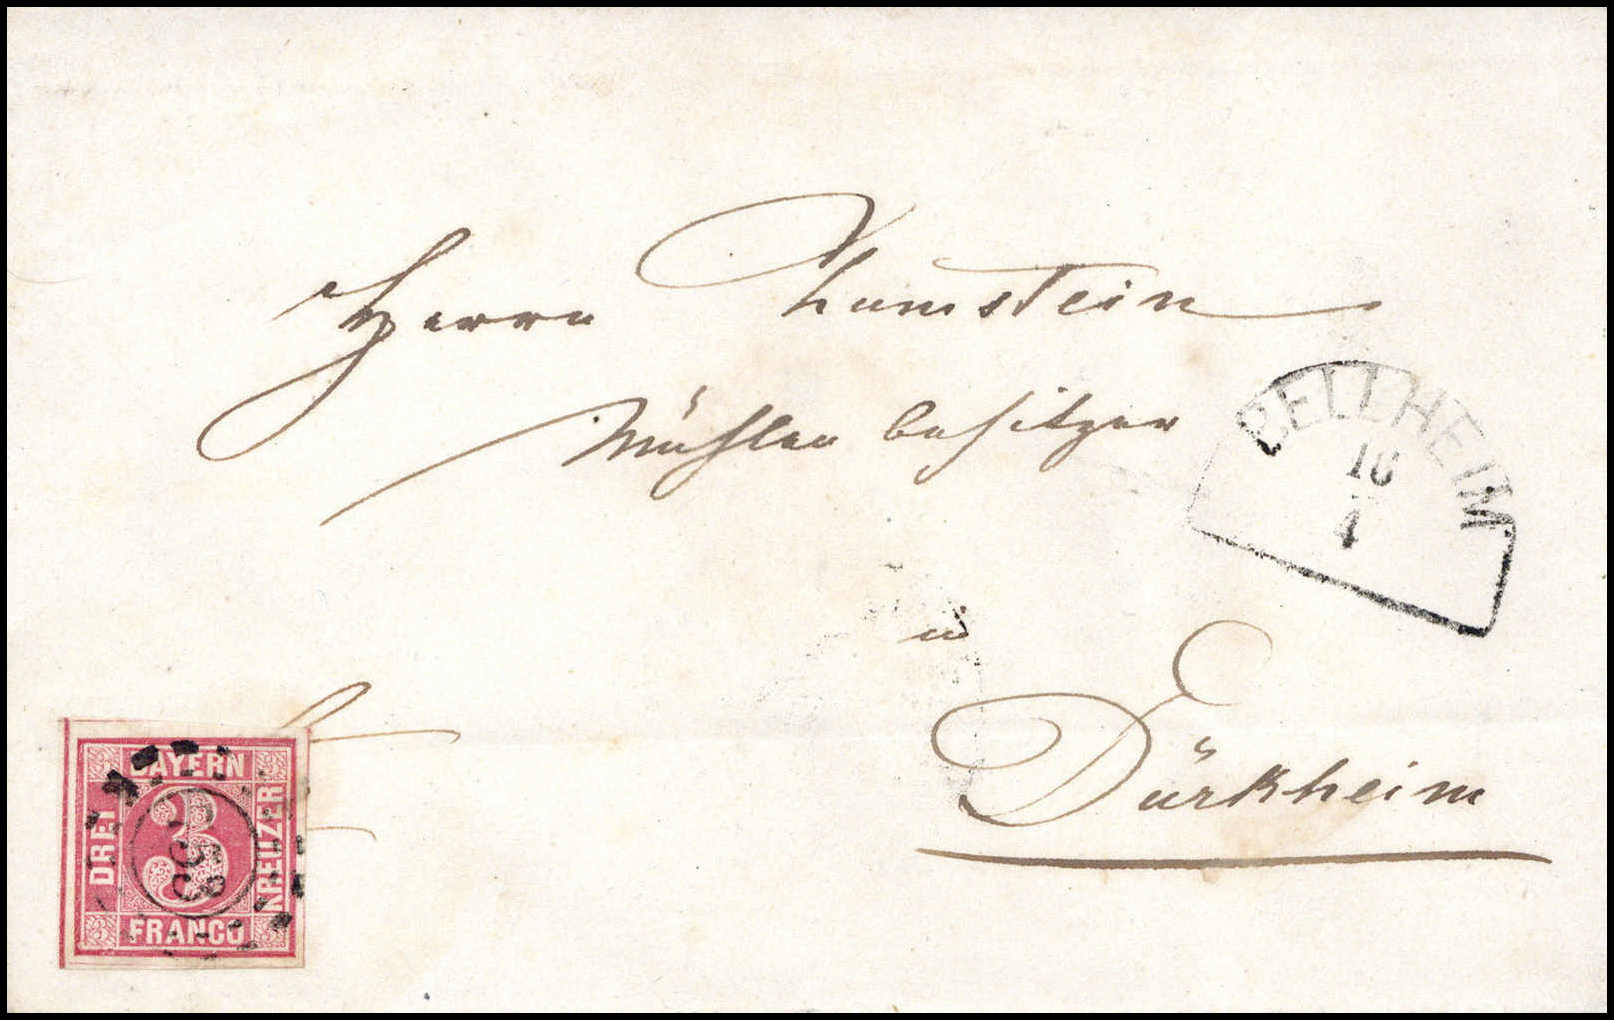 Herrn Chumstein
Mühlen besitzer
BELLHEIM
16
4
in
Dürkheim
BAYERN
DREI
3
KREUZER
FRANCO